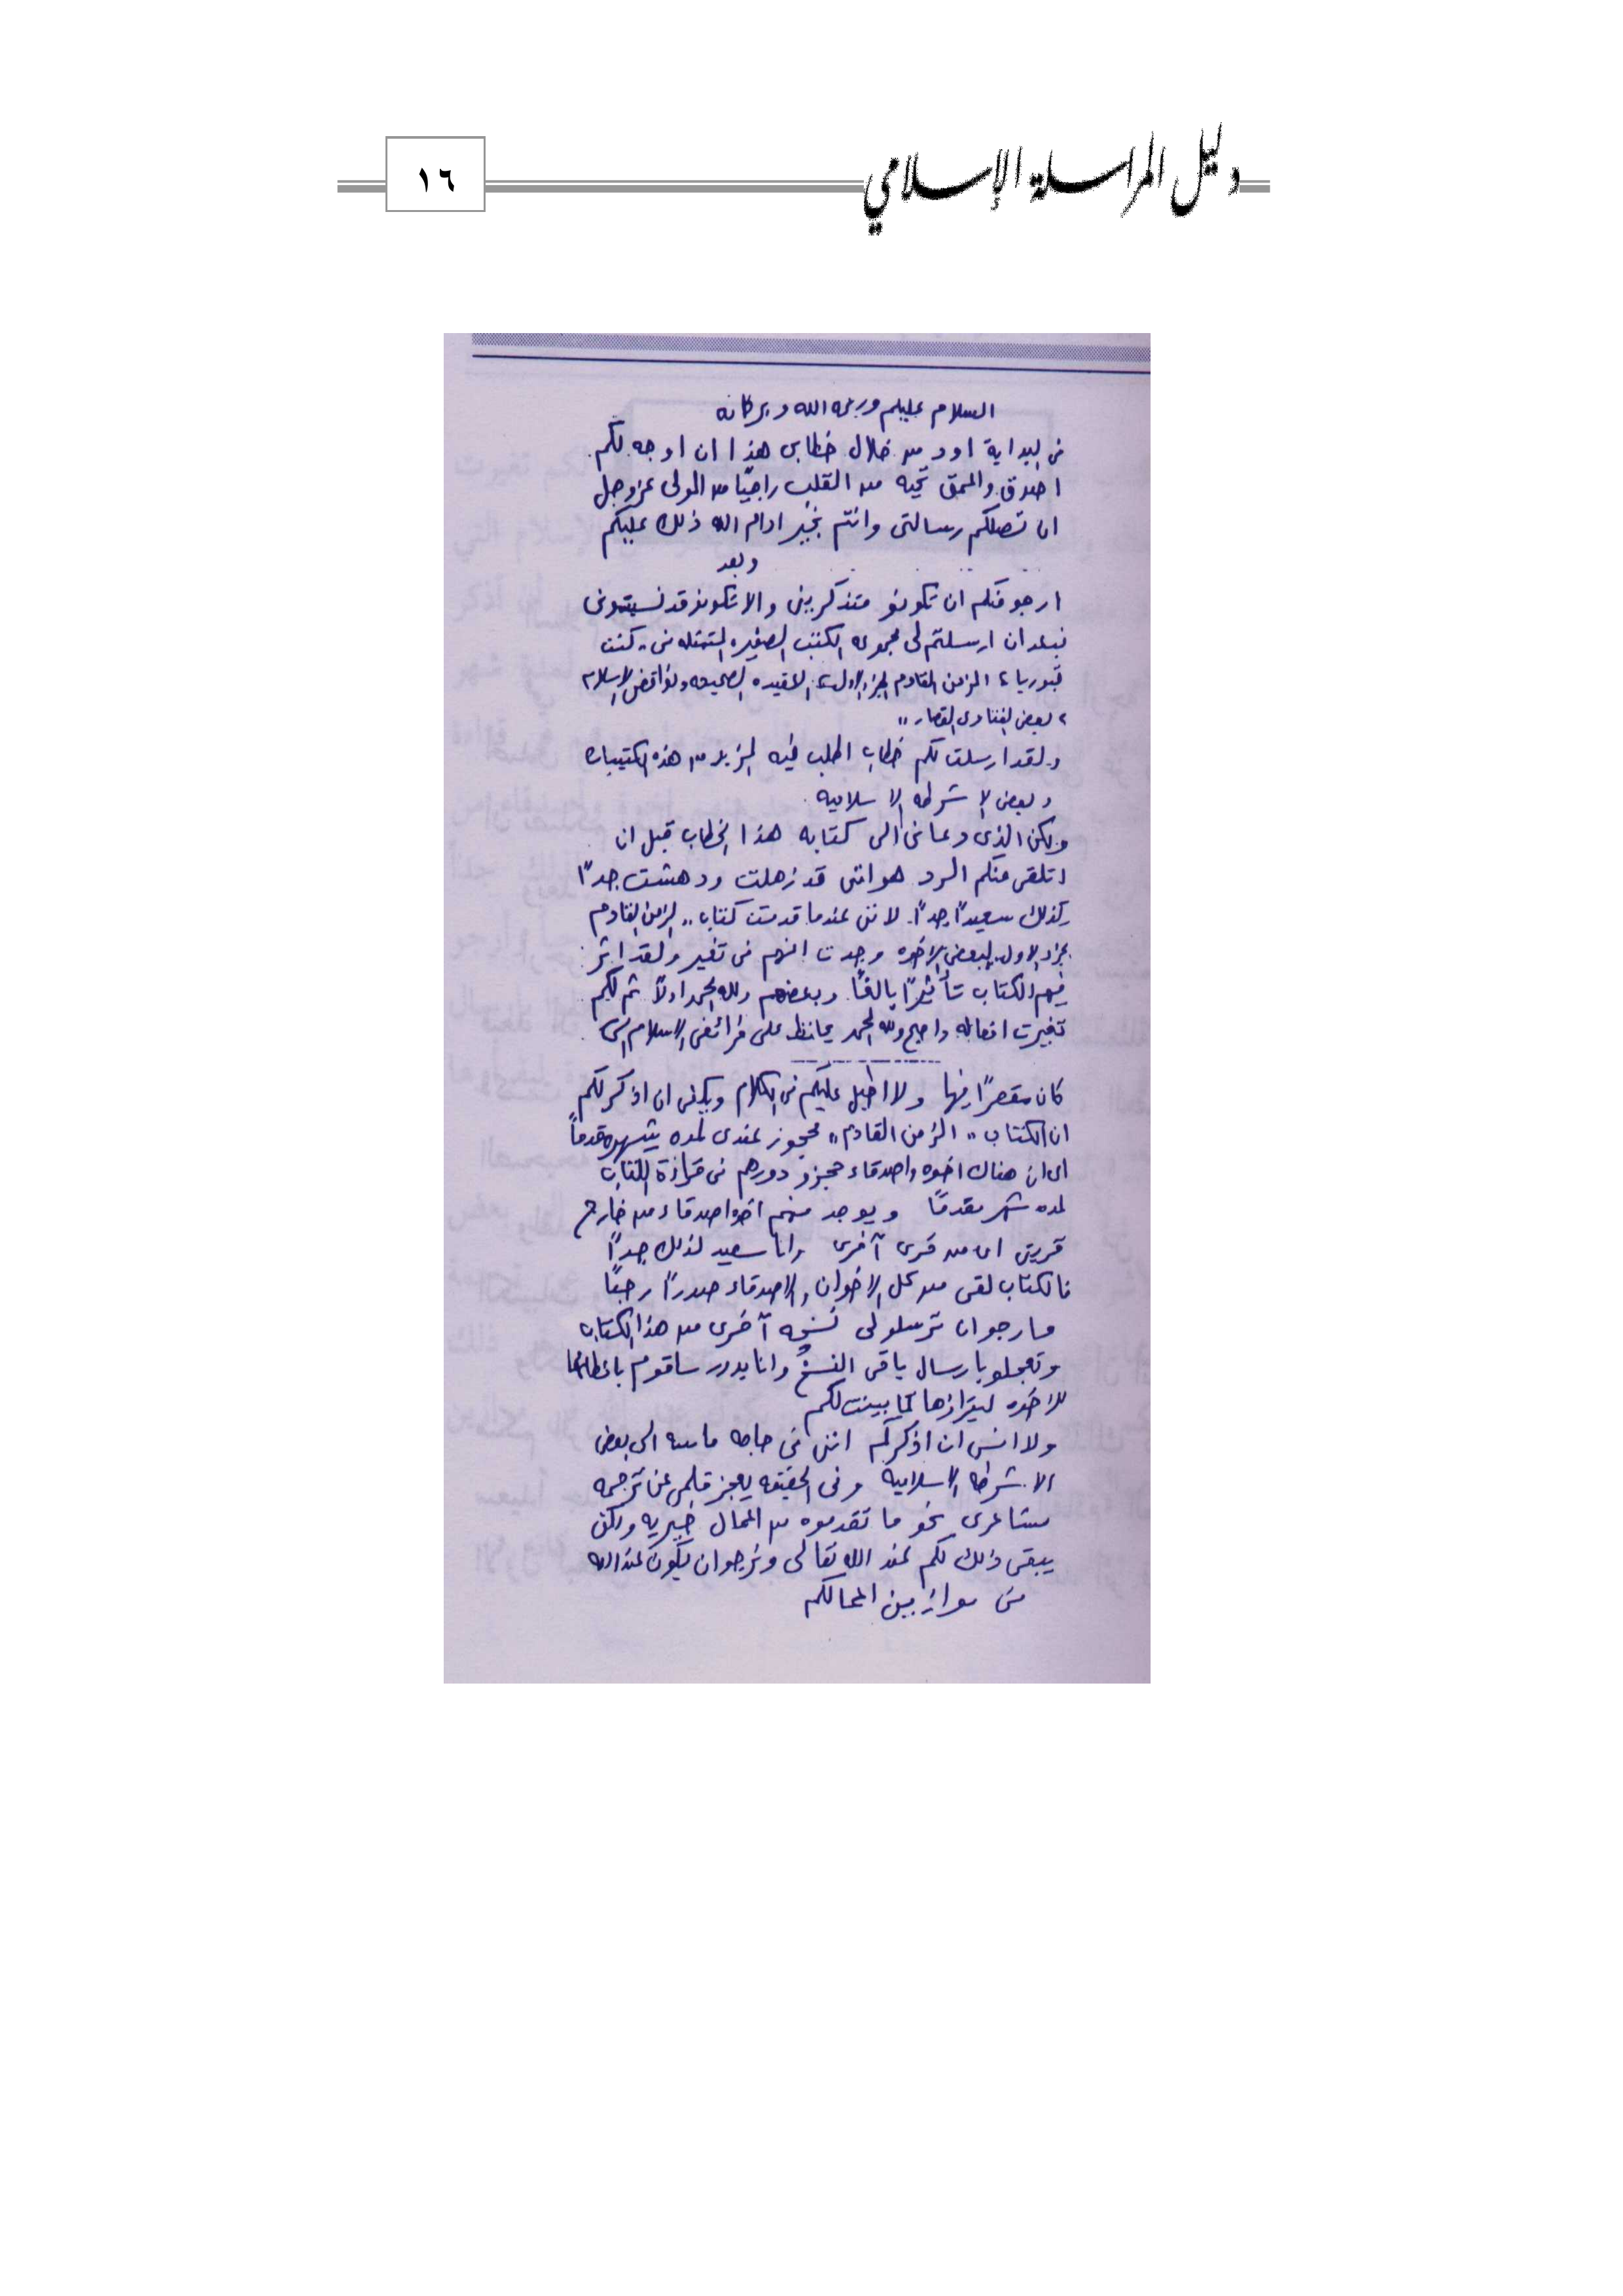 دليل المراسلة الإسلامي
١٦
السلام عليكم ورحمه الله وبركاته
فى البداية اود من خلال خطابى هذا ان اوجه لكم
اصدق واعمق تحيه من القلب راجيًا من المولى عز وجل
ان تصلكم رسالتى وانتم بخير ادام الله ذلك عليكم
وبعد
ارجو منكم ان تكونو متذكرينى والا تكونو قد نسيتونى
فبعد ان ارسلتم لى مجموعه الكتب الصغيره المتمثله فى " كنت
قبوريا ، الزمن القادم الجزء الاول ، العقيده الصحيحه ونواقض الاسلام
، بعض الفتاوى القصار "
ولقد ارسلت لكم خطاب اطلب فيه المزيد من هذه الكتيبات
وبعض الاشرطه الاسلاميه
ولكن الذى دعانى الى كتابه هذا الخطاب قبل ان
اتلقى منكم الرد هو اننى قد زهلت ودهشت جدًا
كذلك سعيدًا جدًا. لاننى عندما قدمت كتاب " الزمن القادم
جزء الاول لبعض الاخوه وجدت انهم فى تغير ولقد اثر
فيهم الكتاب تأثيرًا بالغًا. وبعضهم ولله الحمد اولاً ثم لكم
تغيرت افعاله واصبح ولله الحمد يحافظ على فرائض الاسلام التى
كان مقصرًا فيها ولا اطيل عليكم فى الكلام ويكفى ان اذكر لكم
ان الكتاب " الزمن القادم " محجوز عندى لمده شهر مقدماً
اى ان هناك اخوه واصدقاء حجزو دورهم فى قراءة الكتاب
لمده شهر مقدمًا ويوجد منهم اخوه اصدقاء من خارج
قريتى اى من قرى آخرى وانا سعيد لذلك جدًا
فالكتاب لقى من كل الاخوان والاصدقاء صدرًا رحبًا
وارجو ان ترسلو لى نسخه آخرى من هذا الكتاب
وتعجلو بارسال باقى النسخ وانا بدورى ساقوم باعطائها
للاخوه ليقرازها كما بينت لكم
ولا انسى ان اذكركم اننى فى حاجه ماسه الى بعض
الاشرطه الاسلاميه وفى الحقيقه يعجز قلمى عن ترجمه
مشاعرى نحو ما تقدموه من اعمال خيريه ولكن
يبقى ذلك لكم عند الله تعالى ونرجو ان يكون عند الله
فى موازين اعمالكم